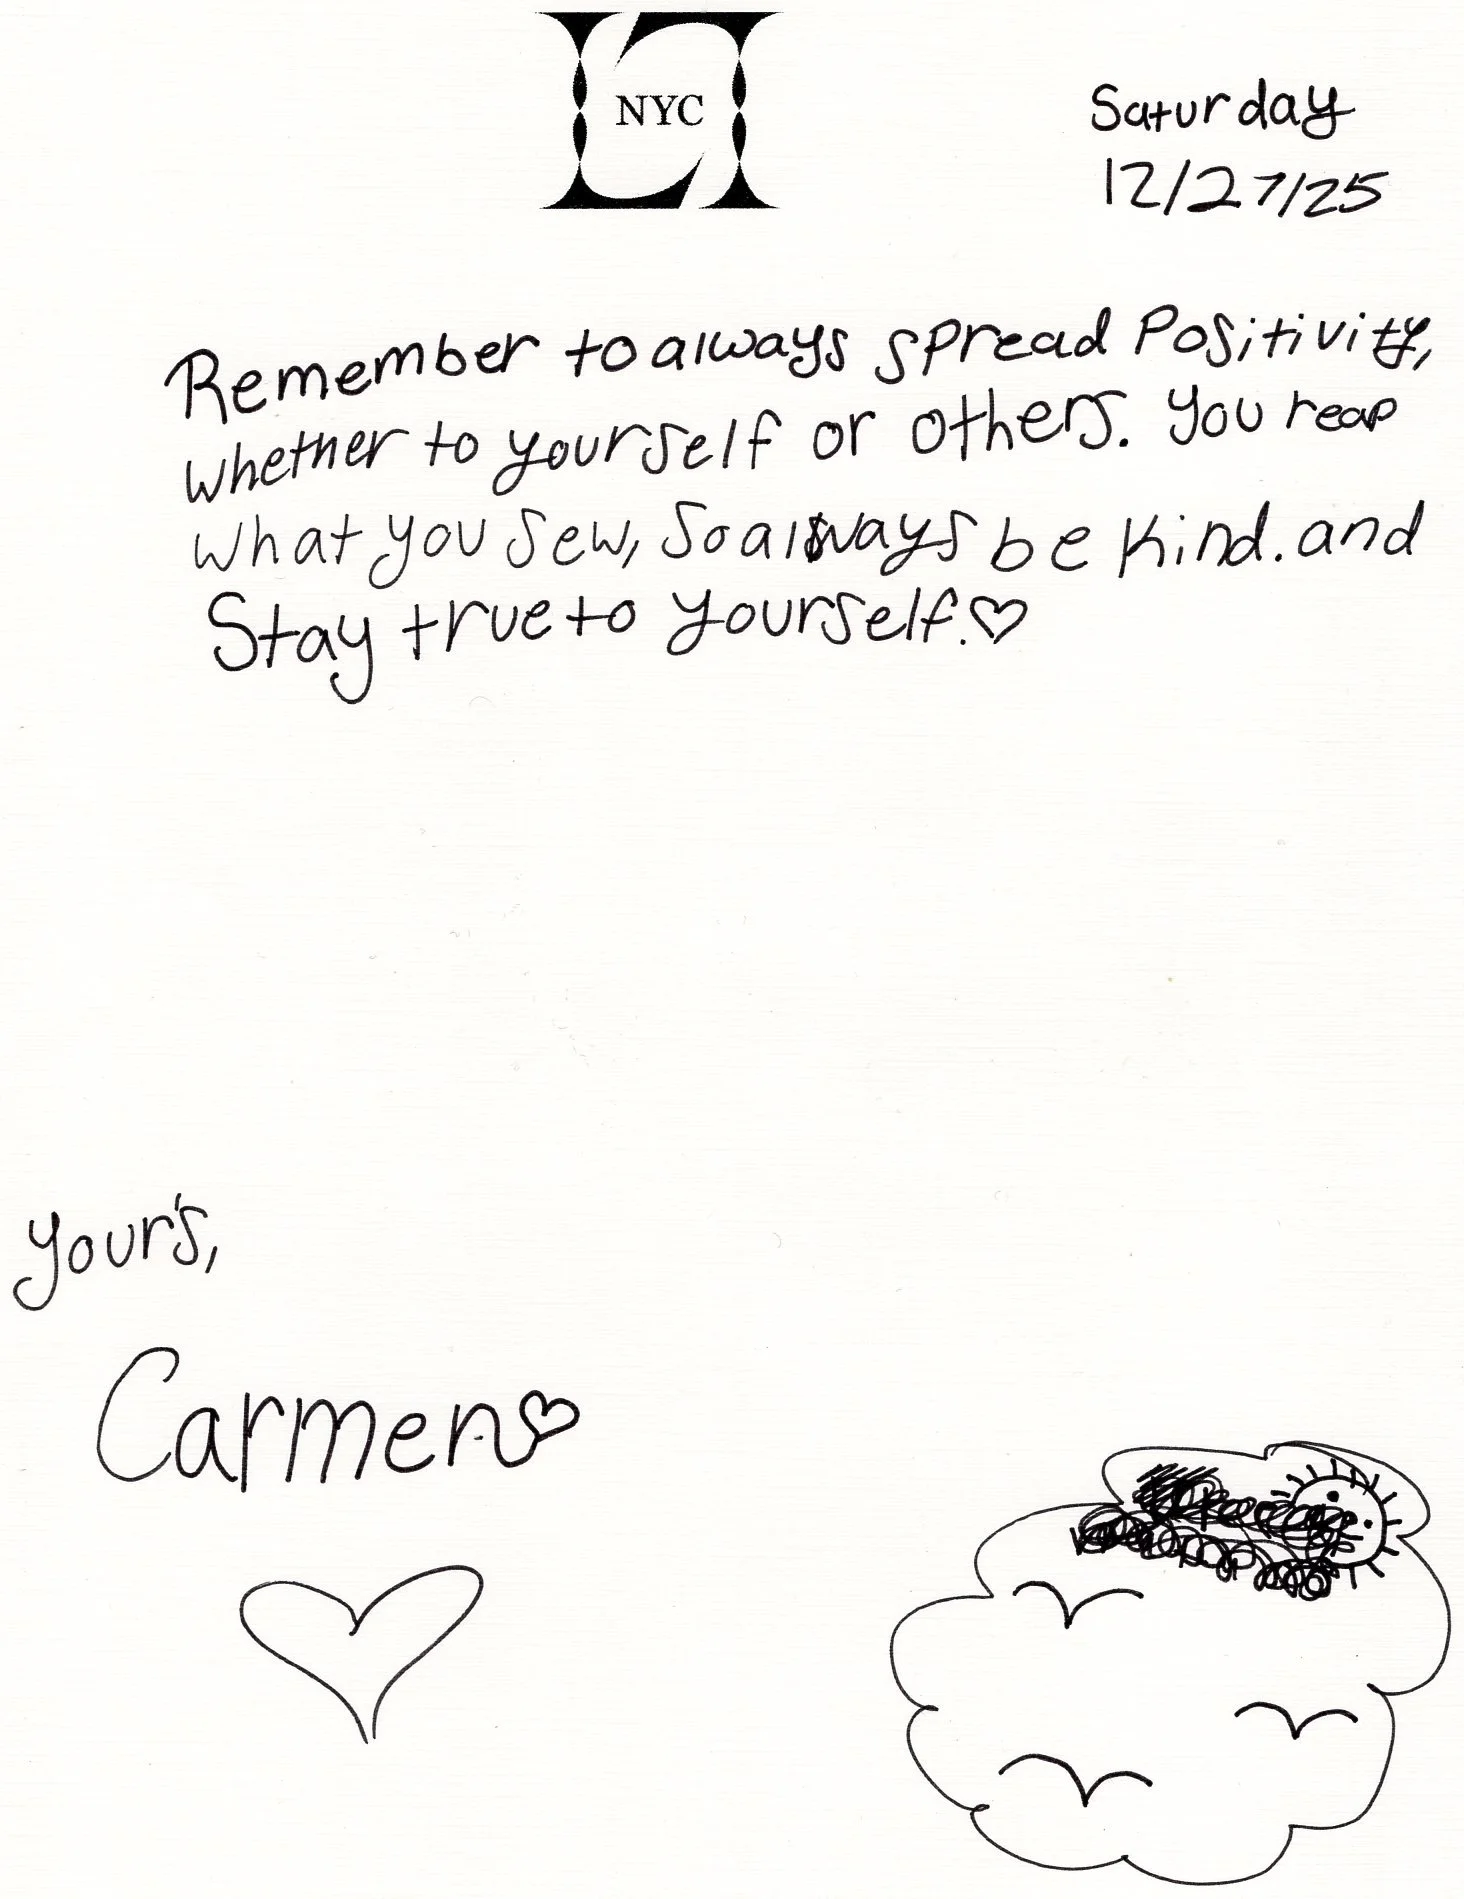 NYC
Saturday
12/27/25
Remember to always spread Positivity,
whether to yourself or others. You reap
what you sew, So always be Kind. and
Stay true to yourself. ♡
your's,
Carmen ♡